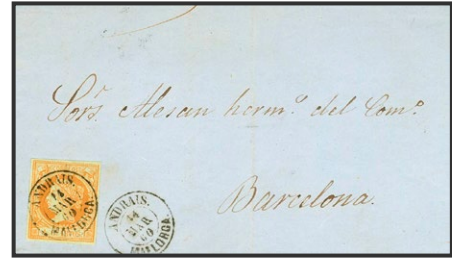 Sors. Alesan herm.º del Com.º
Barcelona.
ANDRAIS.
14
MAR
60
MALLORCA.
ANDRAIS.
14
MAR
60
MALLORCA.